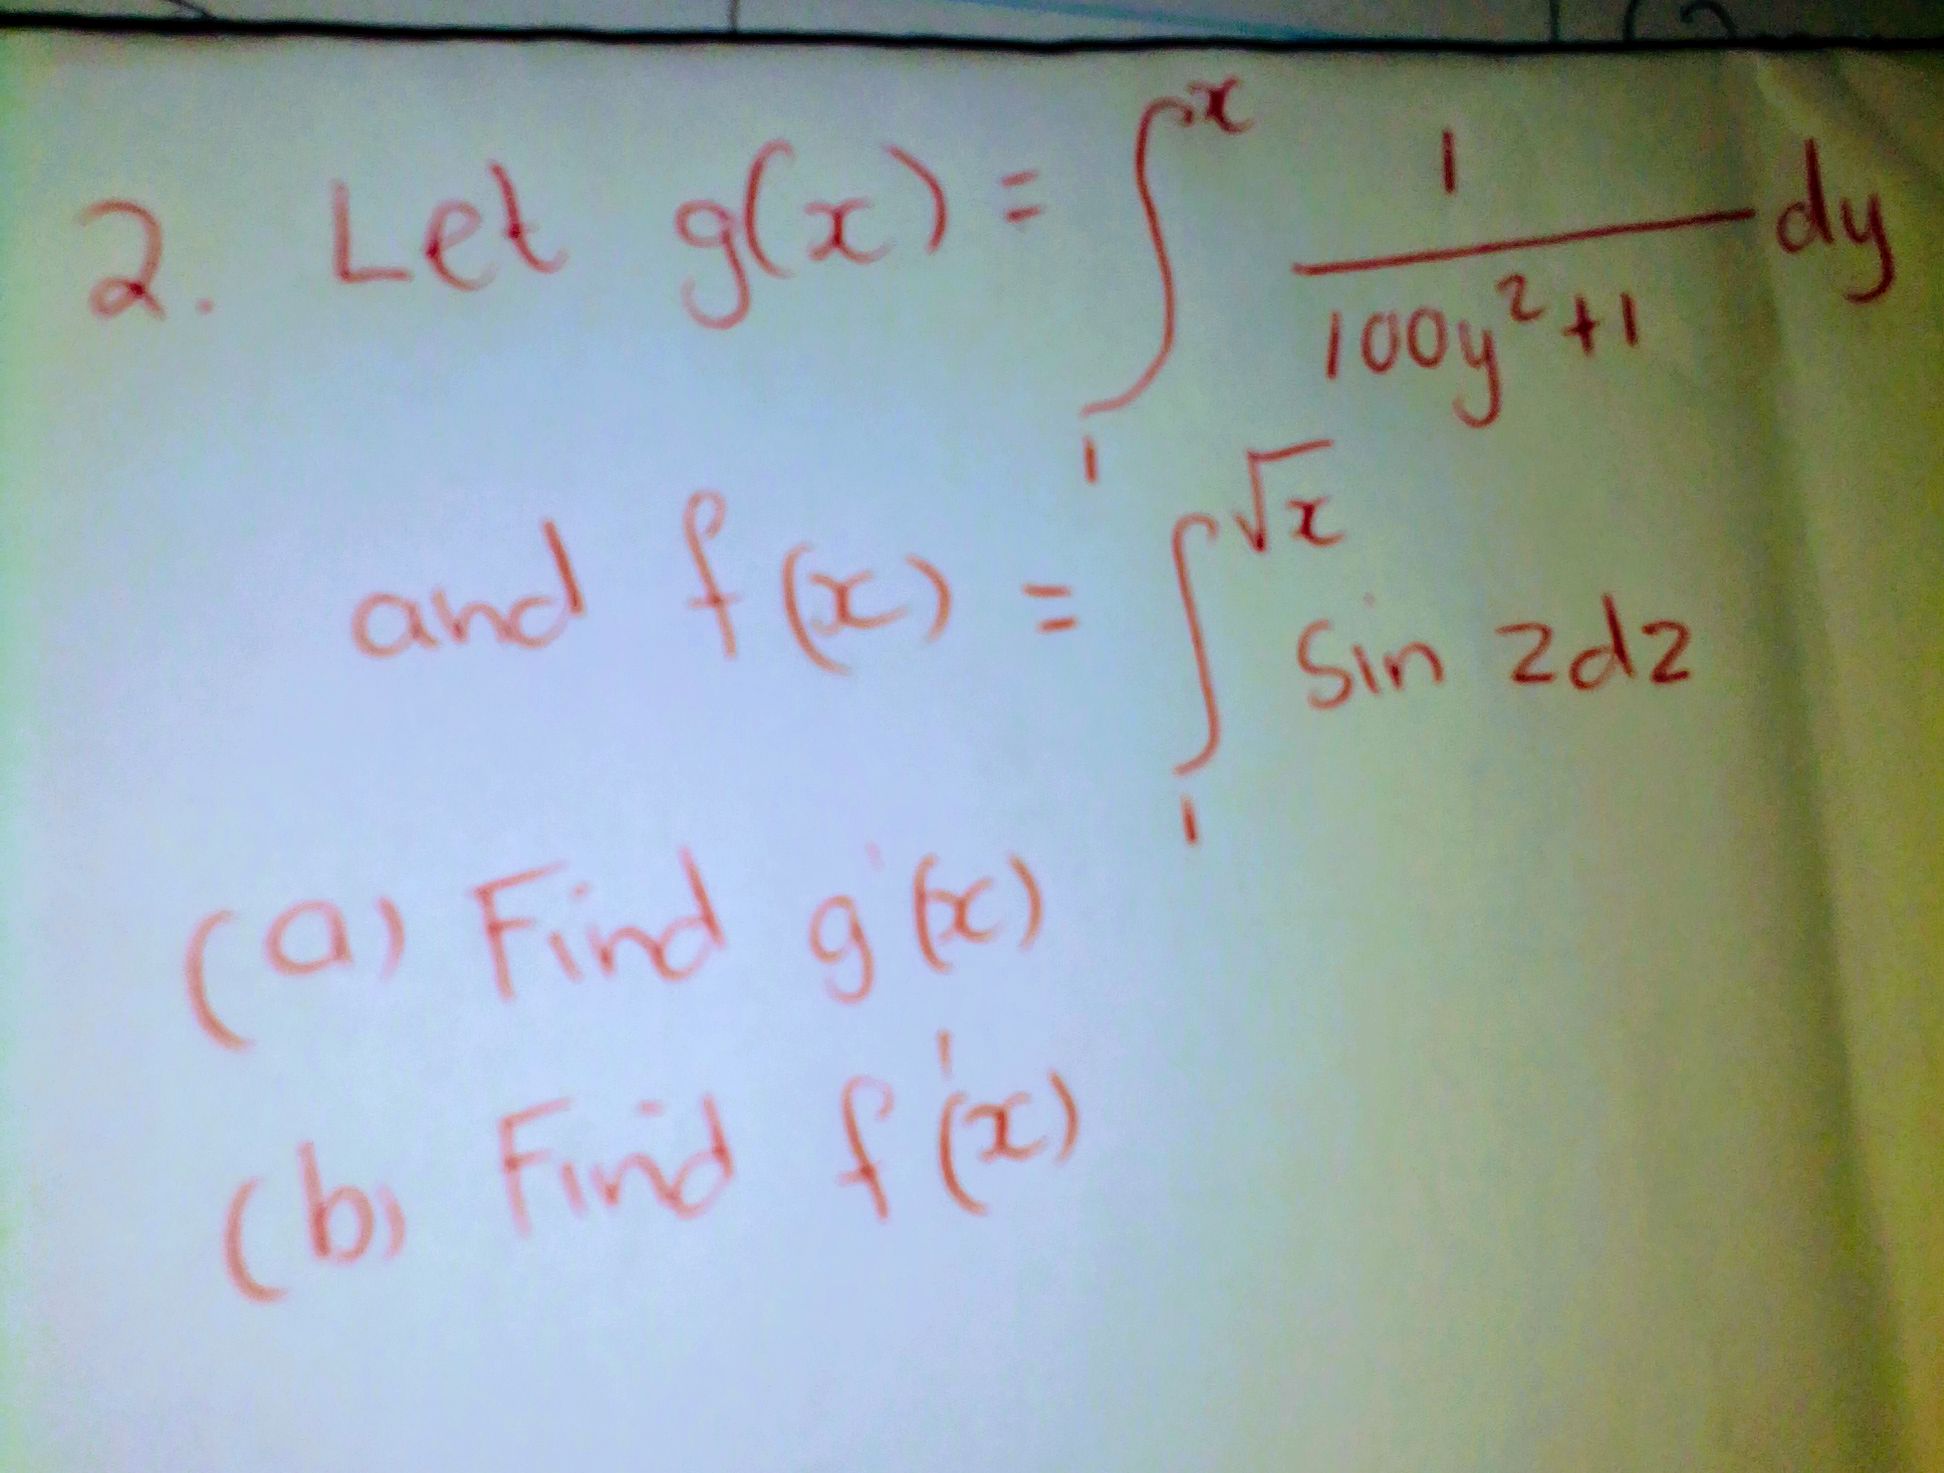 2. Let g(x) = ∫₁ˣ 1/(100y²+1) dy
and f(x) = ∫₁^√x Sin z dz
(a) Find g'(x)
(b) Find f'(x)